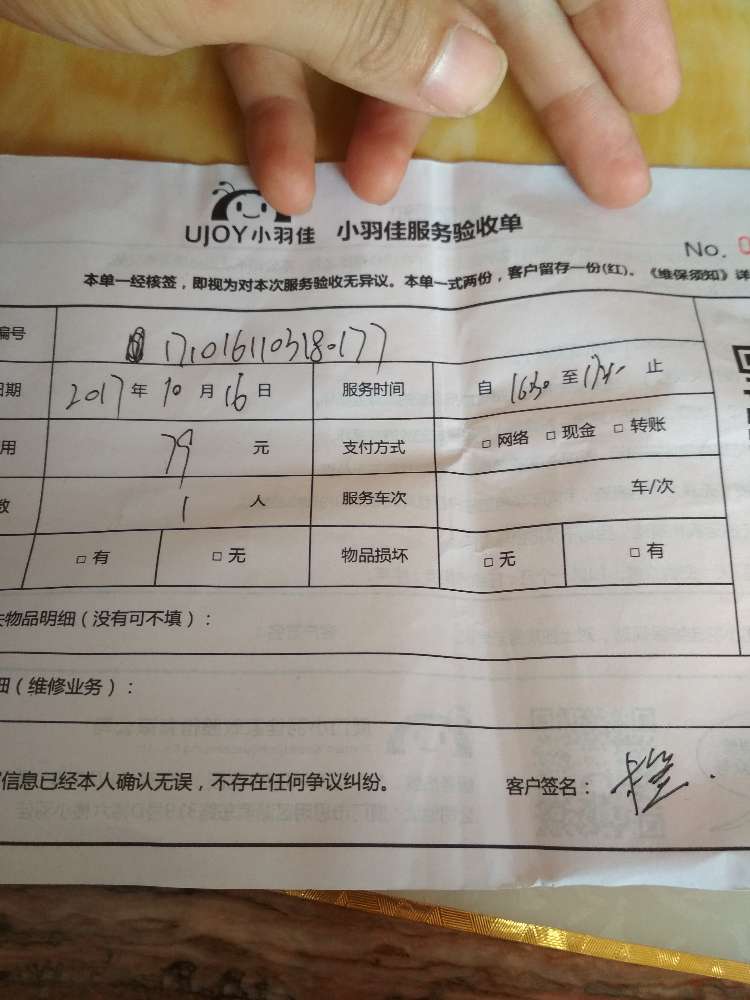 UJOY小羽佳 小羽佳服务验收单
No. 0
本单一经核签，即视为对本次服务验收无异议。本单一式两份，客户留存一份(红)。《维保须知》详
编号 1710161103180177
日期 2017年10月16日 服务时间 自1630至 止
用 79元 支付方式 □网络 □现金 □转账
数 1人 服务车次 车/次
□有 □无 物品损坏 □无 □有
失物品明细（没有可不填）：
细（维修业务）：
信息已经本人确认无误，不存在任何争议纠纷。 客户签名：